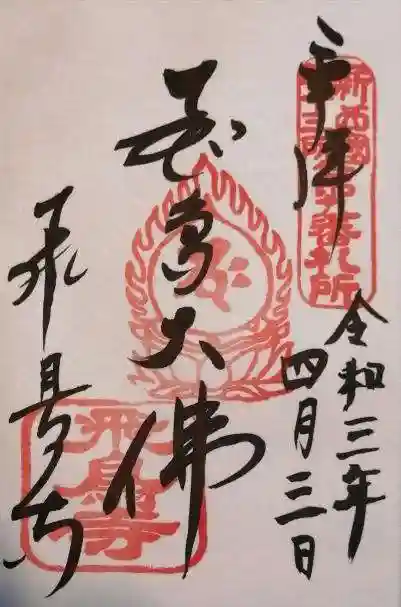 奉拝
新西國
札所
令和三年
四月三日
飛鳥大佛
飛鳥寺
飛鳥寺